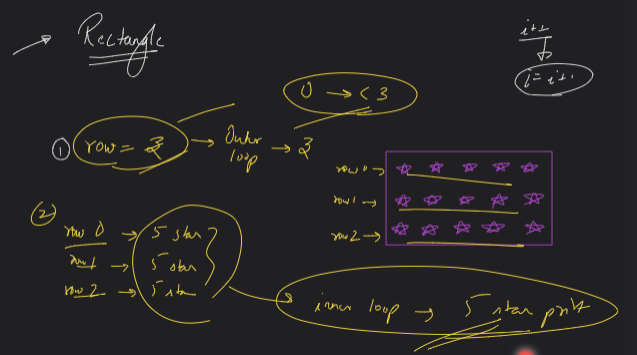 Rectangle
i++
i = i+1
0 → < 3
① row = 3 → Outer loop → 3
row 0 → ☆ ☆ ☆ ☆ ☆
row 1 → ☆ ☆ ☆ ☆ ☆
row 2 → ☆ ☆ ☆ ☆ ☆
②
row 0 → 5 star
row 1 → 5 star
row 2 → 5 star
inner loop → 5 star print